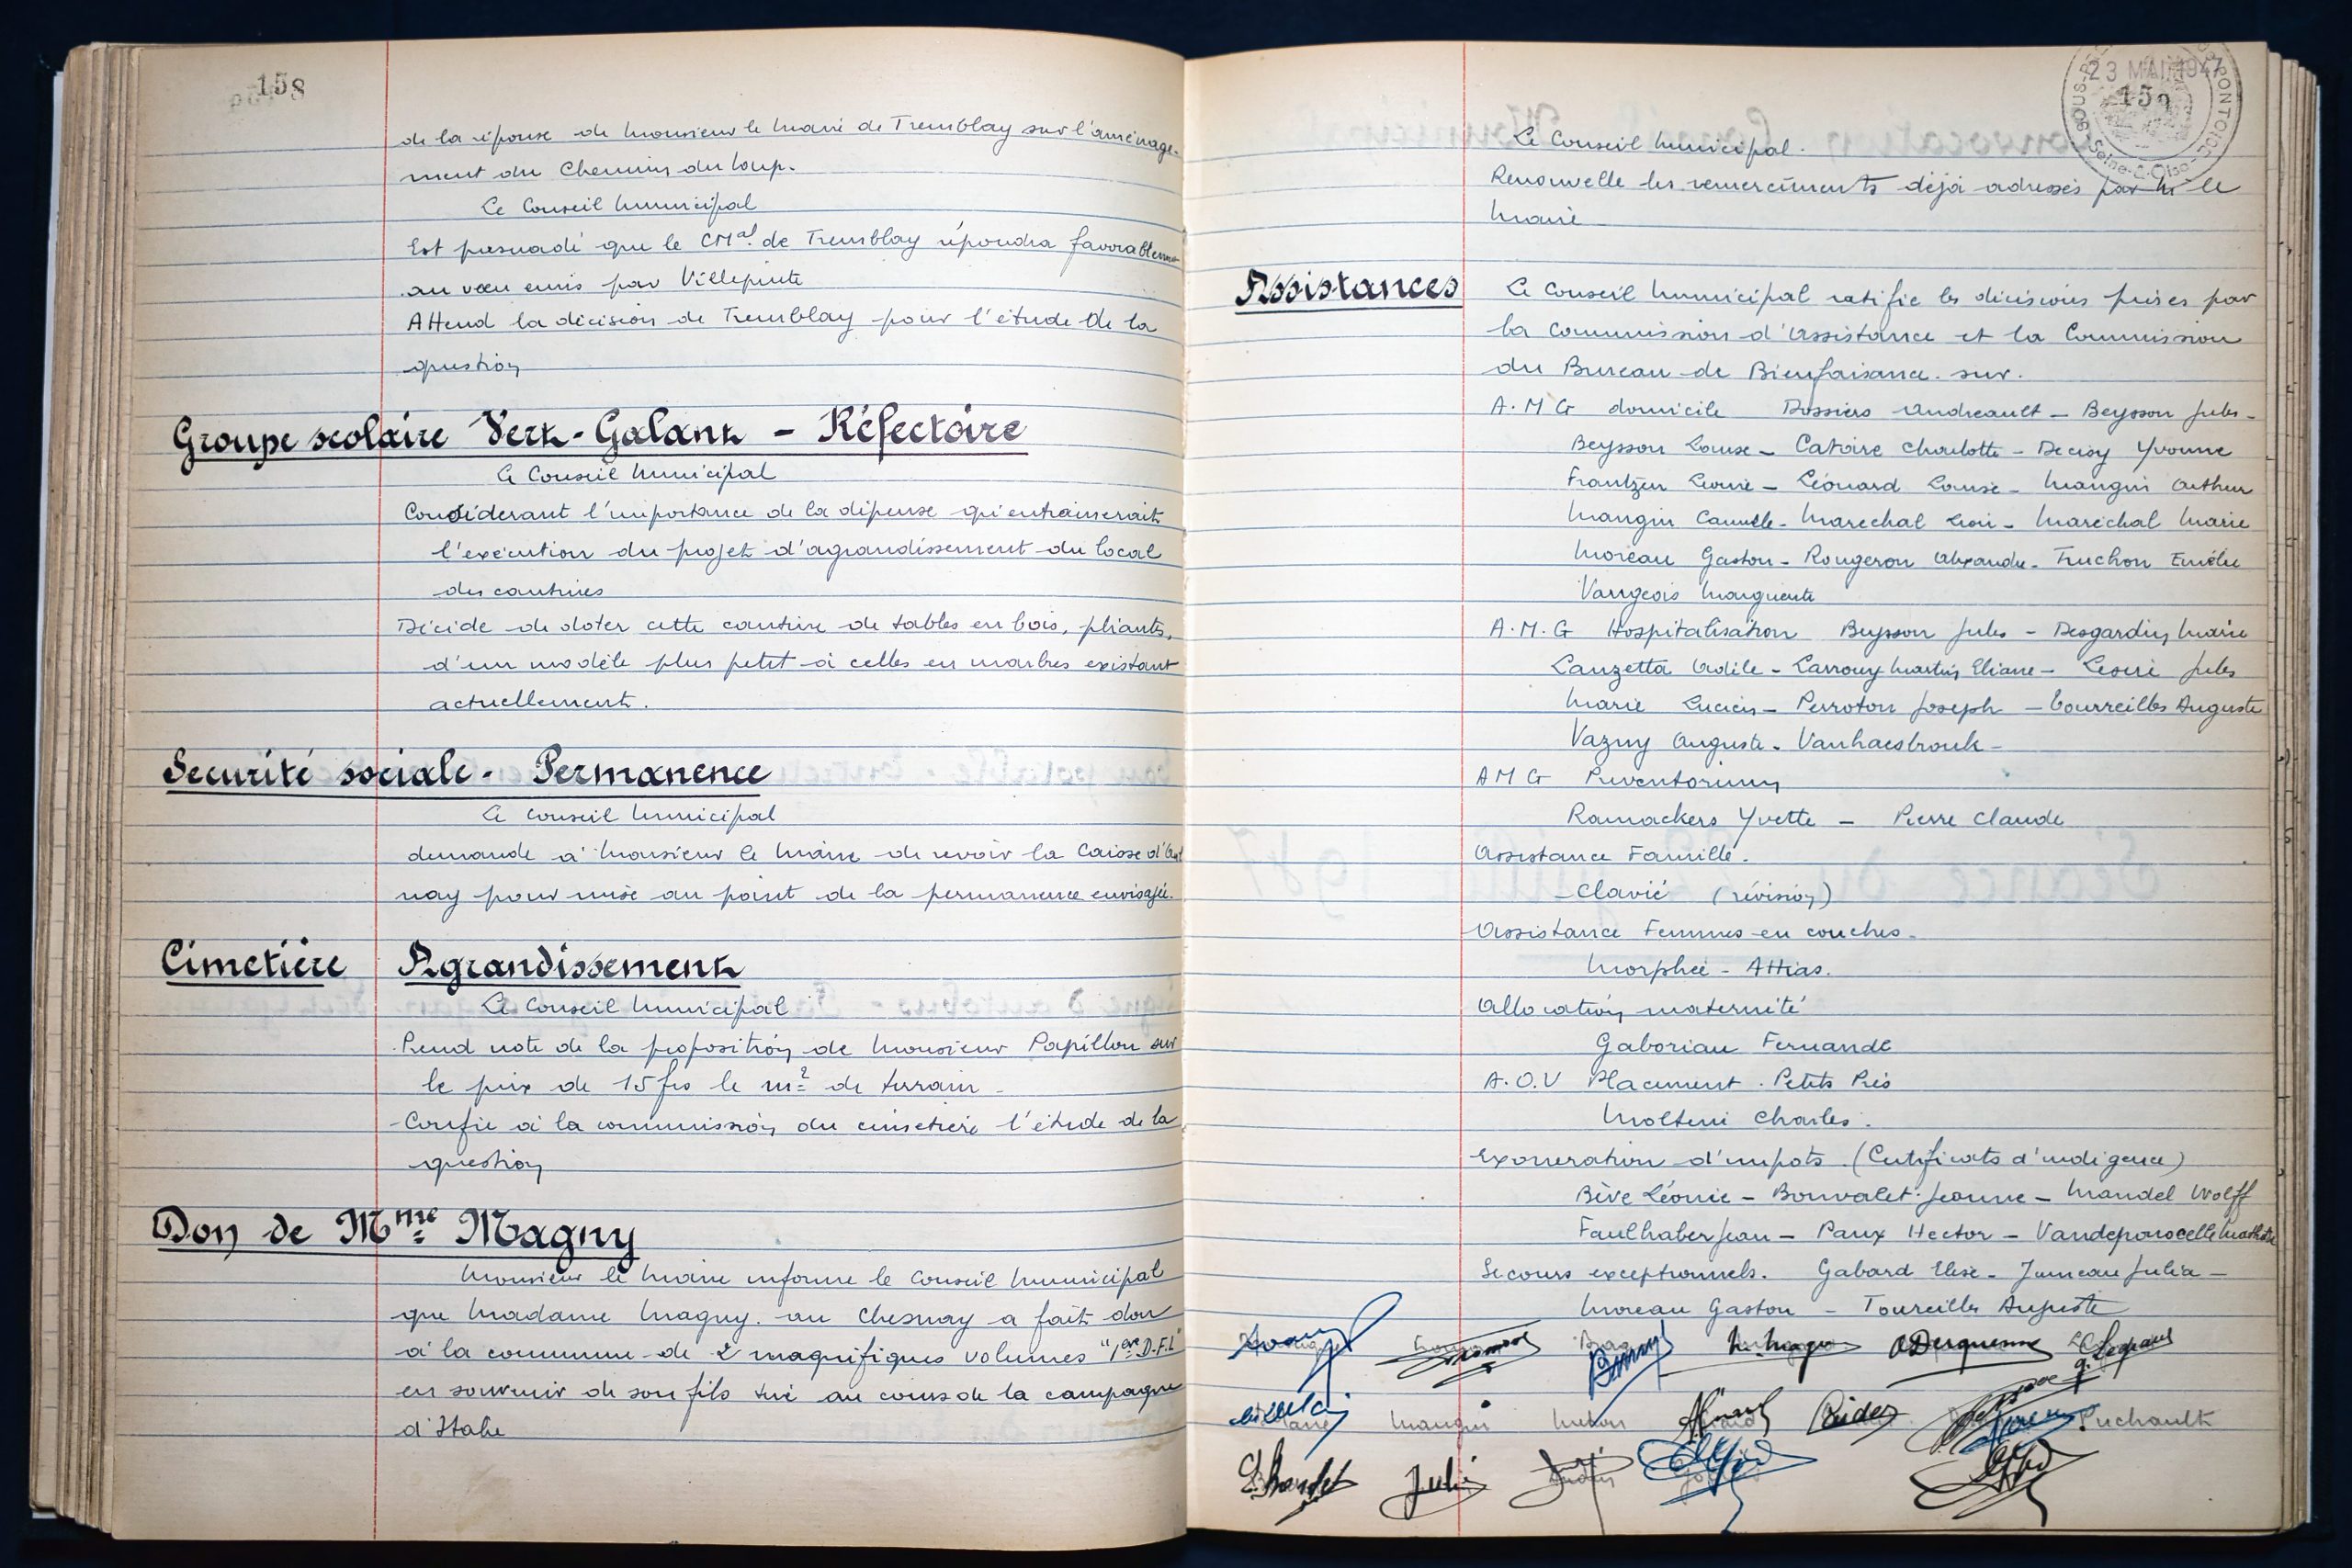 158
de la réponse de Monsieur le Maire de Tremblay sur l'aménage-
ment du Chemin du Loup.
Le Conseil Municipal
Est persuadé que le CMal de Tremblay répondra favorablement
au vœu émis par Villepinte
Attend la décision de Tremblay pour l'étude de la
question
Groupe scolaire Vert-Galant - Réfectoire
Le Conseil Municipal
Considérant l'importance de la dépense qu'entrainerait
l'exécution du projet d'agrandissement du local
des cantines
Décide de doter cette cantine de tables en bois, pliants,
d'un modèle plus petit à celles en marbres existant
actuellement.
Securité sociale - Permanence
Le Conseil Municipal
demande à Monsieur le Maire de revoir la Caisse d'Aul
nay pour mise au point de la permanence envisagée.
Cimetière Agrandissement
Le Conseil Municipal
Prend note de la proposition de Monsieur Papillon sur
le prix de 15 frs le m² de terrain -
Confie à la commission du cimetière l'étude de la
question
Don de Mme Magny
Monsieur le Maire informe le Conseil Municipal
que Madame Magny au Chesnay a fait don
à la commune de 2 magnifiques volumes "1ère D.F.L"
en souvenir de son fils tué au cours de la campagne
d'Italie
23 MAI 1947
159
SOUS-PONTOISE
Seine-&-Oise
Le Conseil Municipal.
Renouvelle les remerciements déjà adressés par Mr le
Maire
Assistances
Le Conseil Municipal ratifie les décisions prises par
la Commission d'Assistance et la Commission
du Bureau de Bienfaisance sur.
A.M.G domicile Dossiers Andreault - Beysson Jules -
Beysson Louise - Catoire Charlotte - Decroy Yvonne
Frantzen Léonie - Léonard Louise - Mangin Arthur
Mangin Camille - Marechal Léon - Maréchal Marie
Moreau Gaston - Rougeron Alexandre - Truchon Emélie
Vangeois Marguerite
A.M.G Hospitalisation Beysson Jules - Desgardin Marie
Lanzetta Adèle - Larrouy Martin Eliane - Lesire Jules
Marie Lucien - Perroton Joseph - Tourreilles Auguste
Vazny Auguste - Vanhaesbrouk -
A M G Preventorium
Ramackers Yvette - Pierre Claude
Assistance Famille.
Clavié (révision)
Assistance Femmes en couches -
Morphée - Attias.
Allocation maternité
Gaboriau Fernande
A.O.V Placement. Petits Prés
Molteni Charles.
Exonération d'impots. (Certificats d'indigence)
Bève Léonie - Bonvalet Jeanne - Mandel Wolff
Faulhaber Jean - Paux Hector - Vandeporocelle Mathilde
Secours exceptionnels. Gabard Elise - Jumeau Julia -
Moreau Gaston - Toureilles Auguste
Derquenne Legrand
Mangin Rides Puchault
Julié